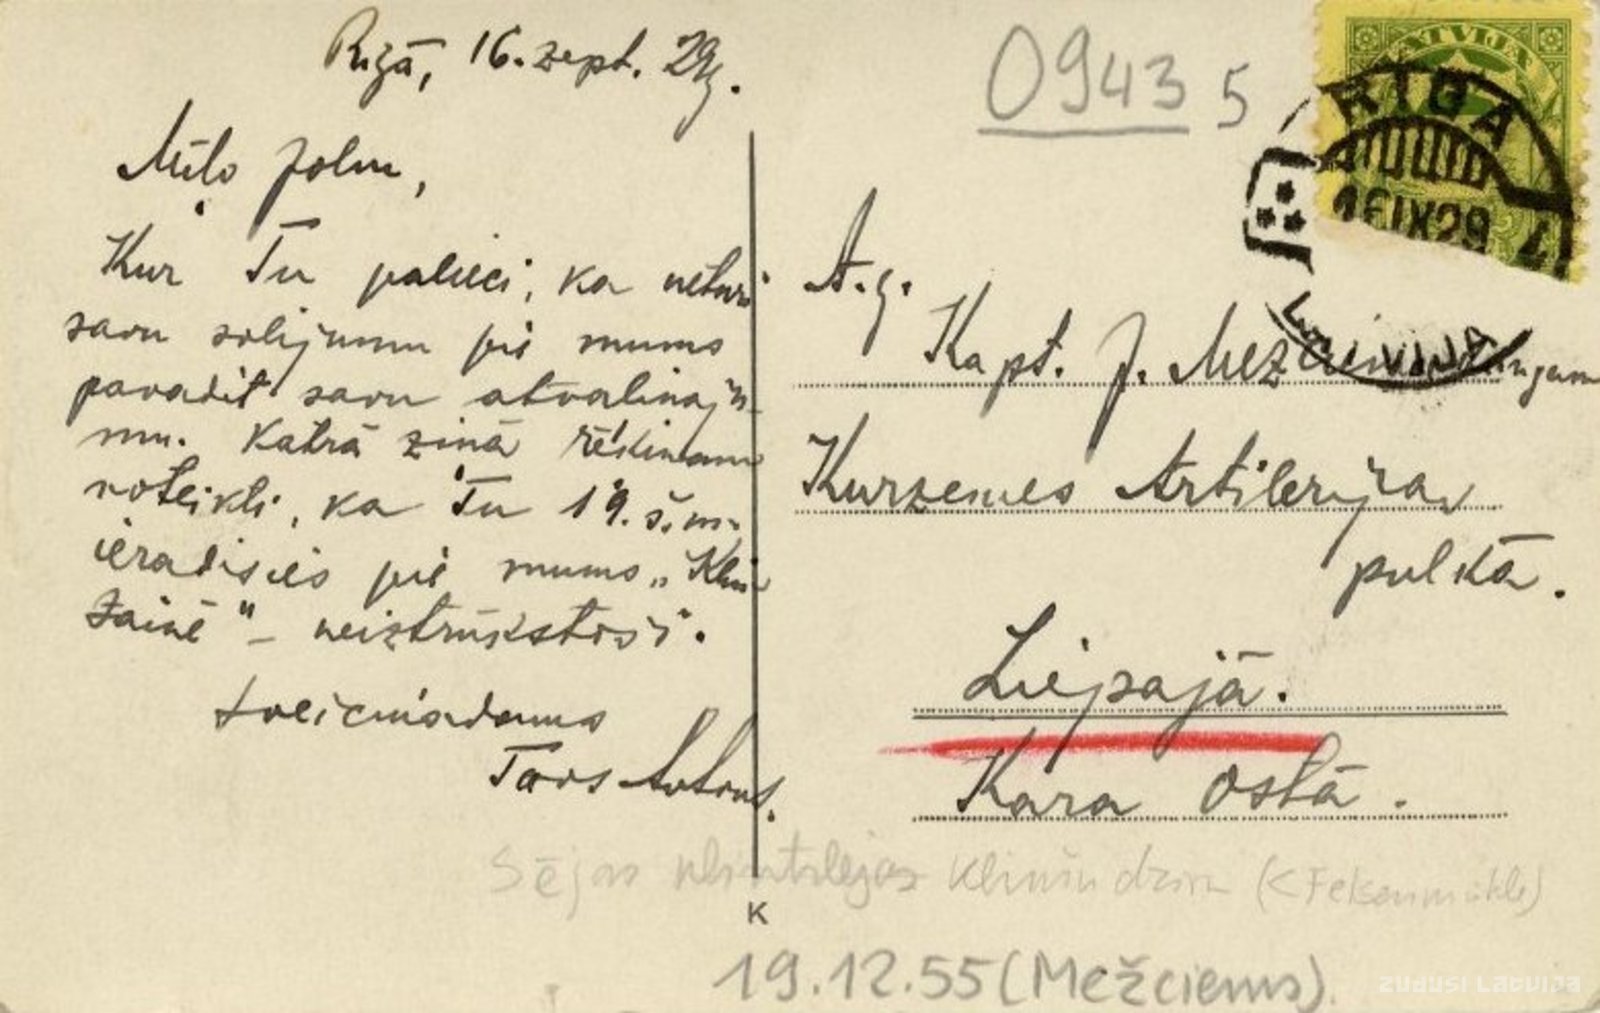 Rīgā, 16. sept. 29g.
Mīļo Jolm,
Kur Tu palieci, ka neturi
savu solijumu pie mums
pavadit savu atvaļinaju-
mu. Katrā ziņā rēķinam
noteikti, ka Tu 19. š.m.
ieradisies pie mums „Klin-
tainē" – neiztrūkstoši.
sveicinādams
Tavs
09435
LATVIJA
RIGA
16 IX 29
LATVIJA
A.g.
Kapt. J. kungam
Kurzemes Artilerijas
pulkā.
Liepajā.
Kara ostā.
Sējas
K
19.12.55 (Mežciems).
ZUDUSI LATVIJA